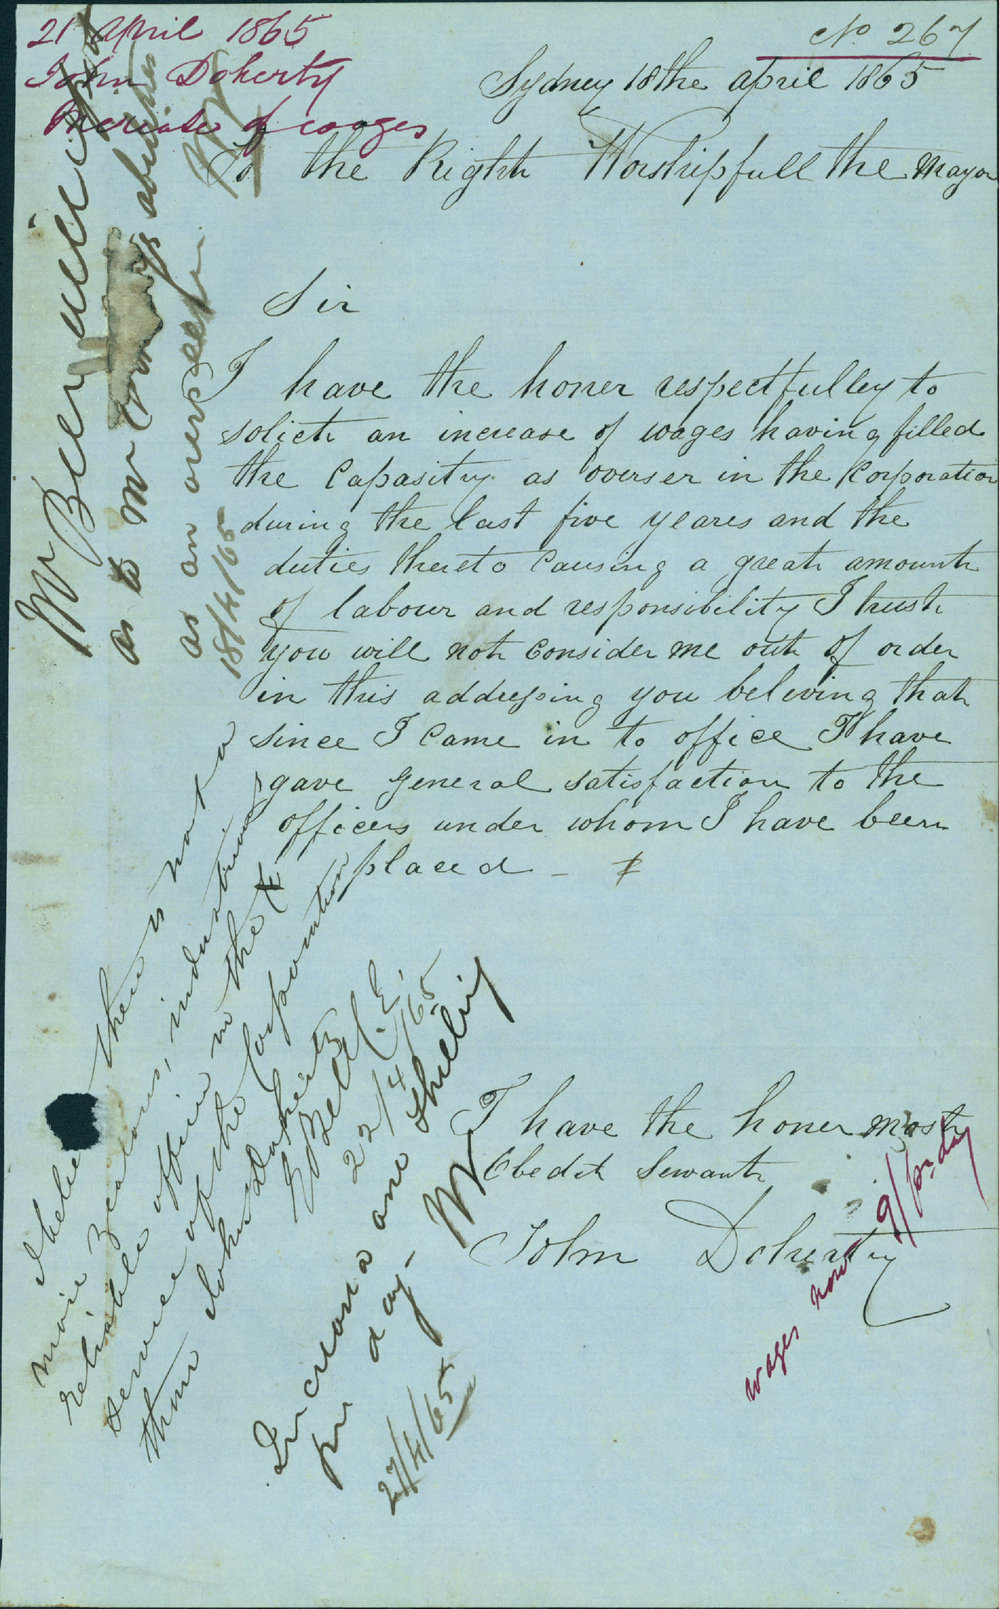 21 April 1865
John Doherty
Increase of wages
No 267
Sydney 18the april 1865
To the Right Worshipfull the Mayor
Sir
I have the honer respectfulley to
solicit an increase of wages having filled
the Capasity as overser in the Corporation
during the last five yeares and the
duties thereto Causing a great amount
of labour and responsibility I trust
you will not Consider me out of order
in this addressing you beleiving that
since I Came in to office I have
gave general satisfaction to the
officers under whom I have been
placed
I have the honer most
Obedt Servant
John Doherty
wages now 9/ per day
Mr Bell
as to Mr
as an overseer
18/4/65
I believe there is not a
more Zealous, industrious &
reliable officer in the
service of the Corporation
than John Doherty
E Bell C.E.
22/4/65
Increase one shilling
per day
27/4/65